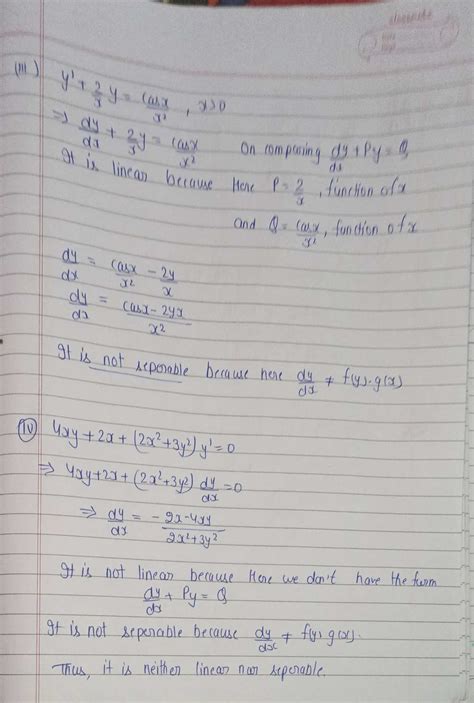 (III) y' + 2/x y = cosx/x², x>0
⇒ dy/dx + 2/x y = cosx/x² On comparing dy/dx + Py = Q,
It is linear because Here P = 2/x, function of x
and Q = cosx/x², function of x
dy/dx = cosx/x² - 2y/x
dy/dx = cosx - 2yx/x²
It is not seperable because here dy/dx ≠ f(y).g(x)
(IV) 4xy + 2x + (2x²+3y²) y' = 0
⇒ 4xy + 2x + (2x²+3y²) dy/dx = 0
⇒ dy/dx = -2x-4xy/2x²+3y²
It is not linear because Here we don't have the form
dy/dx + Py = Q
It is not seperable because dy/dx ≠ f(y) g(x).
Thus, it is neither linear nor seperable.